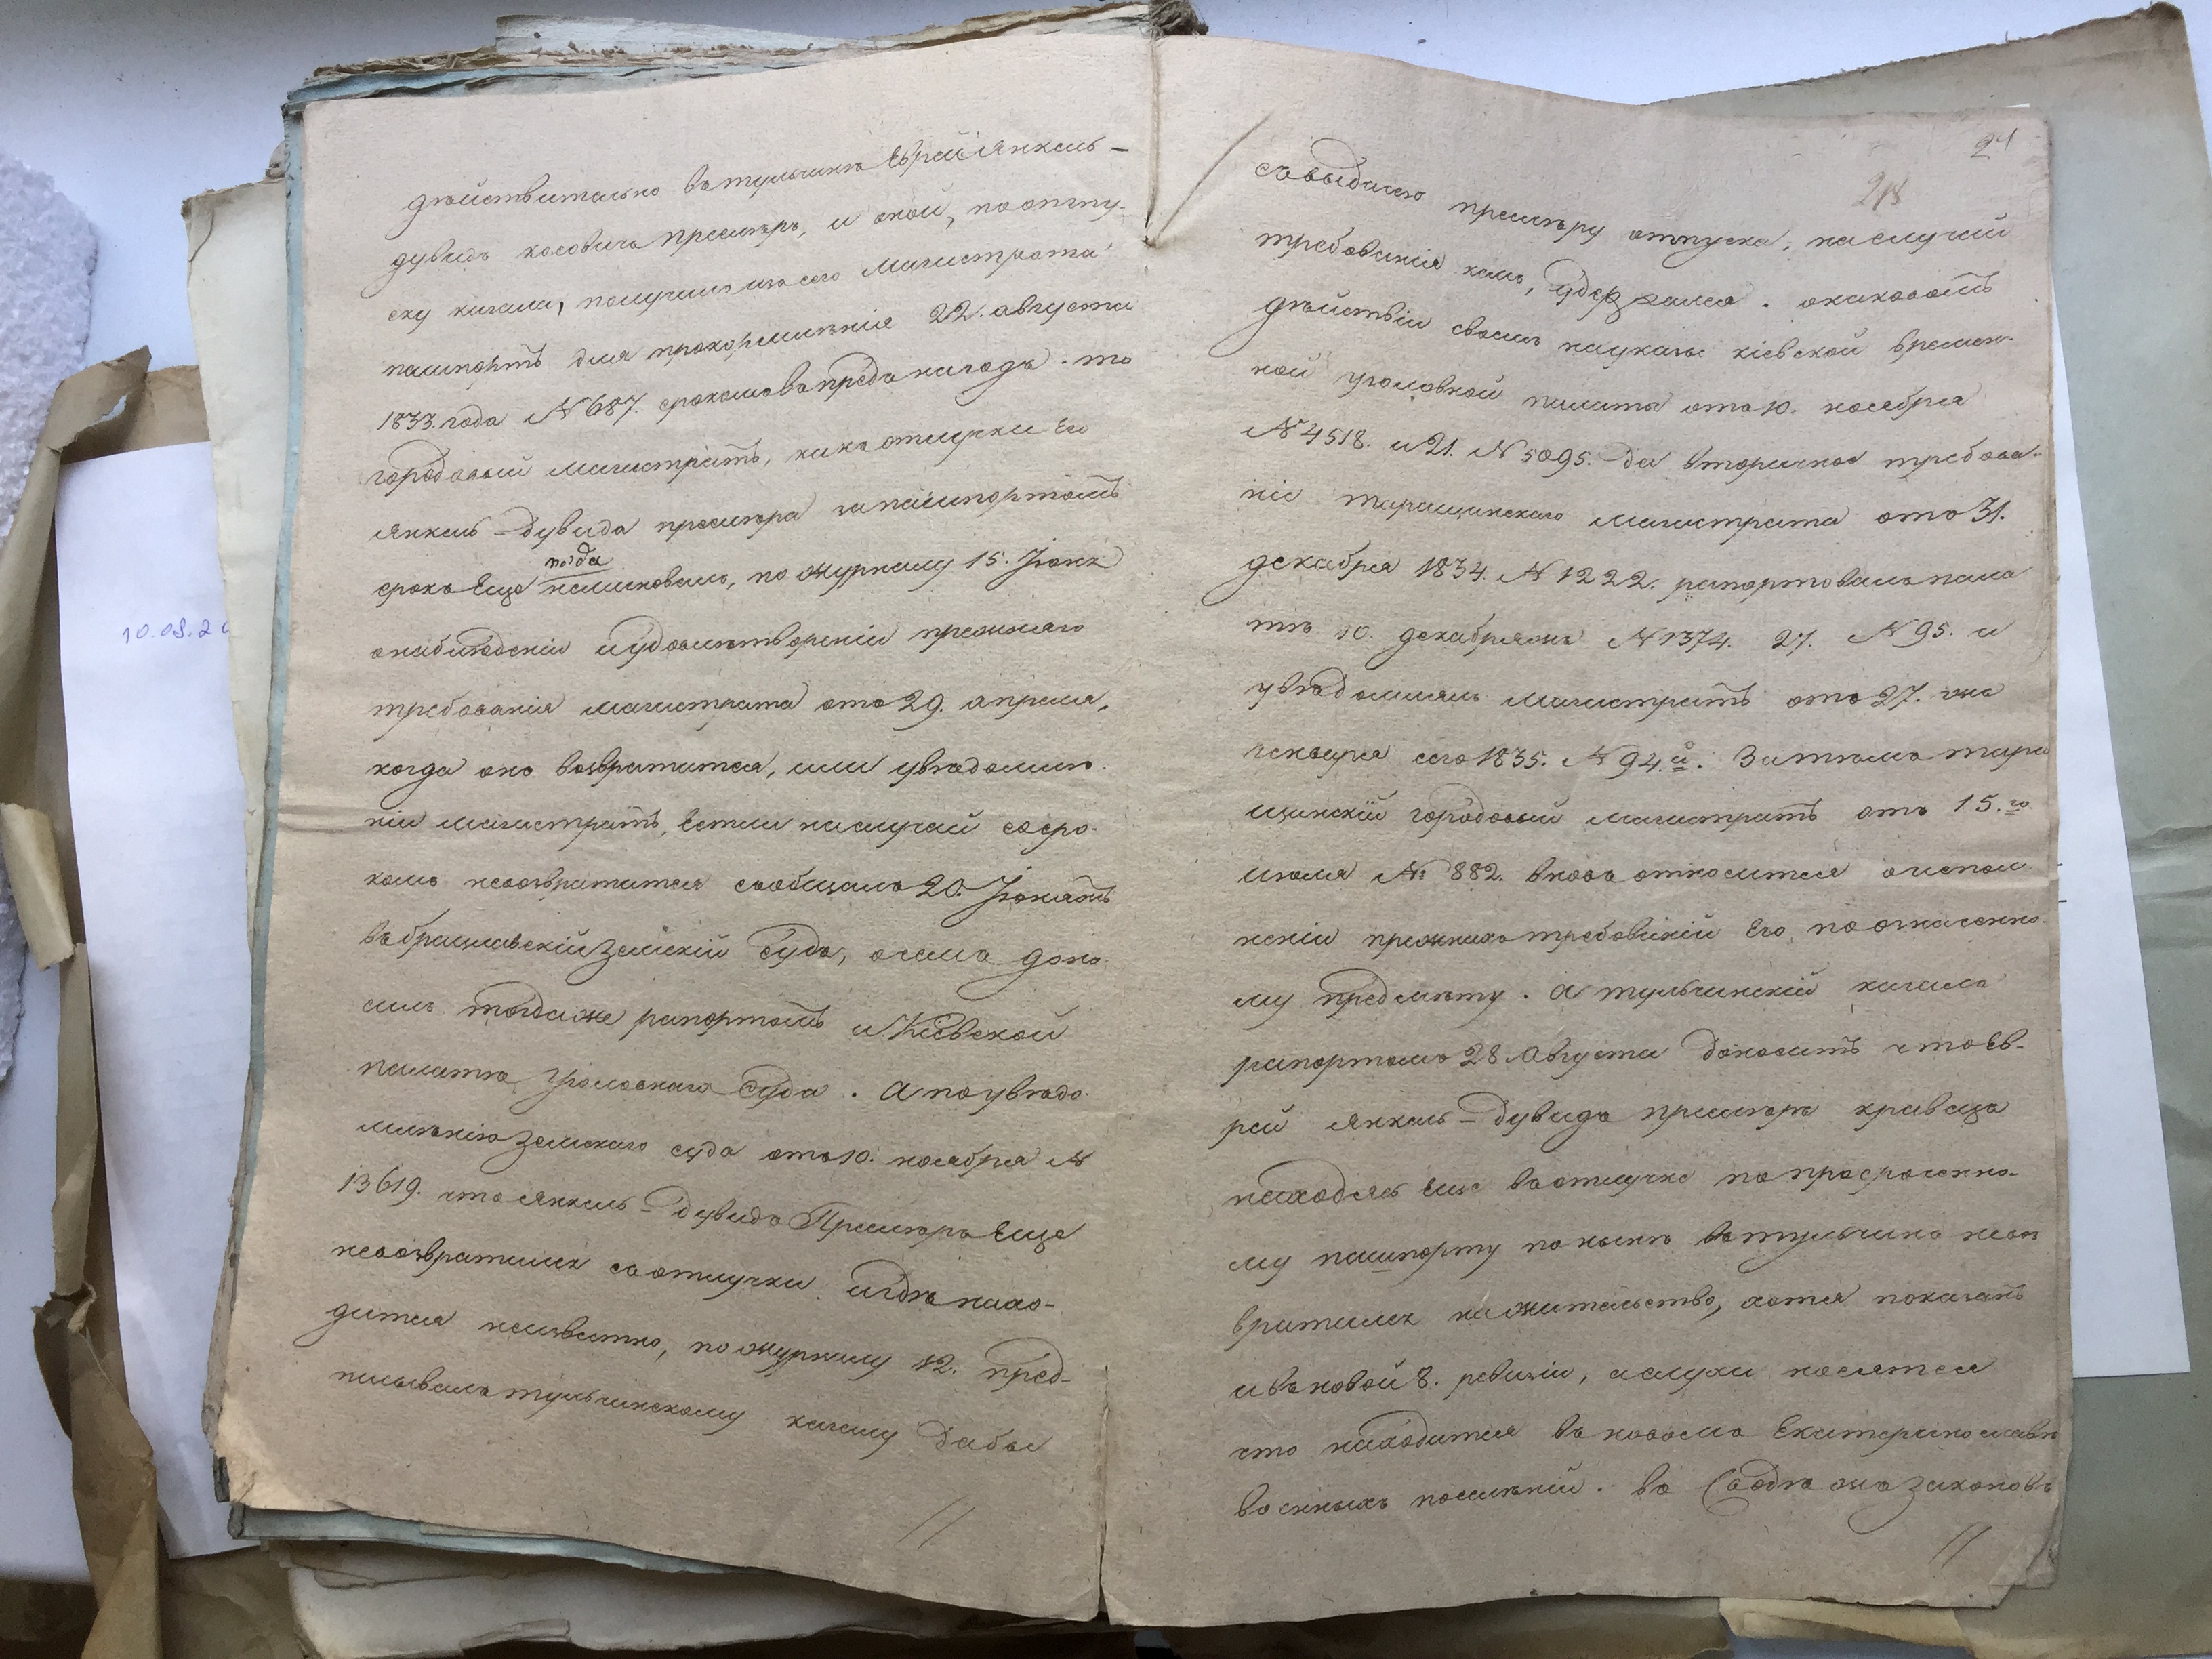 дѣйствительно въ тульчинѣ Еврей Янкель-
дувидъ хосовичъ пресмѣръ, и оной, по отпу-
ску кагала, получилъ изъ сего Магистрата
пашпортъ для прокормленія 22. августа
1833. года N 687. срокомъ впредь на годъ. то
городовый магистратъ, какъ отлучки Его
Янкель-Дувида пресмѣра за пашпортомъ
тогда
срокъ Еще неминовалъ, по журналу 15. Іюня
онаблюденіи и удовлетвореніи прежняго
требованія магистрата отъ 29. апреля,
когда онъ возвратится, или увѣдомле-
ніи магистратъ, Естли на случай со сро-
комъ невозвратится сообщалъ 20. Іюня
въ брацлавскій земскій Судъ, о чемъ доно-
силъ тогда же рапортомъ и Кіевской
палатѣ Уголовнаго Суда. А по увѣдо-
мленію земскаго суда отъ 10. ноября N
13619. что Янкель-Дувидъ Пресмѣръ Еще
невозвратился съ отлучки и гдѣ нахо-
дится неизвѣстно, по журналу 12. пред-
писывалъ тульчинскому кагалу дабы
24
218
съ выдачею пресмѣру отпуска, на случай
требованія имъ, удержался. о каковомъ
дѣйствіи своемъ на указы кіевской времен-
ной уголовной палаты отъ 10. ноября
N 4518. и 21. N 5095. да вторичное требова-
ніе таращанскаго магистрата отъ 31.
декабря 1834. N 1222. рапортовалъ пала
тѣ 10. декабря N 1374. 27. N 95. и
увѣдомлялъ магистратъ отъ 27. же
генваря сего 1835. N 94.й. Затѣмъ тара
щанскій городовый магистратъ отъ 15.го
июля № 882. вновь относится о испол
неніи прежнихъ требованій Его, по означенно-
му предмѣту. А тульчинскій кагалъ
рапортомъ 28 Августа доноситъ что Ев-
рей Янкель-Дувидъ пресмѣръ кравецъ
находясь Еще въ отлучке по просроченно-
му пашпорту по нынѣ въ тульчинъ невоз
вратился на жительство, хотя показанъ
и въ новой 8. ревизіи, а слухи носятся
что находится въ новомъ Екатеринославѣ
военныхъ поселеній. въ Сводѣ же законовъ